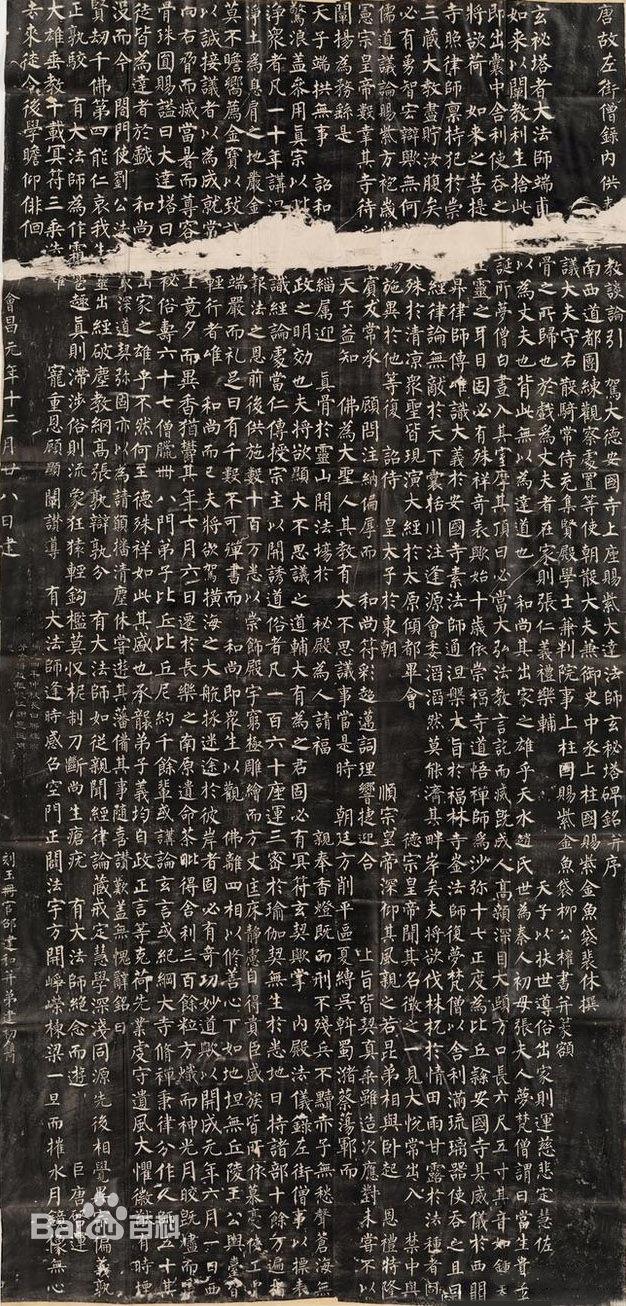 唐故左街僧錄內供 教談論引 駕大德安國寺上座賜紫大達法師玄秘塔碑銘并序
南西道都團練觀察處置等使朝散大夫兼御史中丞上柱國賜紫金魚袋裴休撰
議大夫守右散騎常侍充集賢殿學士兼判院事上柱國賜紫金魚袋柳公權書并篆額
玄秘塔者大法師端甫 骨之所歸也於戲為丈夫者在家則張仁義禮樂輔 天子以扶世導俗出家則運慈悲定慧佐
如來以闡教利生捨此 以為丈夫也背此無以為達道也 和尚其出家之雄乎天水趙氏世為秦人初母張夫人夢梵僧謂曰當生貴子
即出囊中舍利使吞之 誕所夢僧白晝入其室摩其頂曰必當大弘法教言訖而滅既成人高顙深目大頤方口長六尺五寸其音如鍾夫
將欲荷 如來之菩提 生靈之耳目固必有殊祥奇表歟始十歲依崇福寺道悟禪師為沙彌十七正度為比丘隸安國寺具威儀於西明
寺照律師稟持犯於崇 昇律師傳唯識大義於安國寺素法師通涅槃大旨於福林寺崟法師復夢梵僧以舍利滿琉璃器使吞之且曰
三藏大教盡貯汝腹矣 經律論無敵於天下囊括川注逢源會委滔滔然莫能濟其畔岸矣夫將欲伐株杌於情田雨甘露於法種者固
必有勇智宏辯歟無何 殊於清涼眾聖皆現演大經於太原傾都畢會 德宗皇帝聞其名徵之一見大悅常出入 禁中與
儒道議論賜紫方袍歲時 施異於他等復 詔侍 皇太子於東朝 順宗皇帝深仰其風親之若昆弟相與臥起 恩禮特隆
憲宗皇帝數幸其寺待之 賓友常承 顧問注納偏厚而 和尚符彩超邁詞理響捷迎合 上旨皆契真乘雖造次應對未嘗不以
闡揚為務繇是 天子益知 佛為大聖人其教有大不思議事當是時 朝廷方削平區夏縛吳斡蜀瀦蔡蕩鄆而
天子端拱無事 詔和 緇屬迎 真骨於靈山開法場於 秘殿為人請福 親奉香燈既而刑不殘兵不黷赤子無愁聲蒼海無
驚浪蓋參用真宗以毗 政之明効也夫將欲顯大不思議之道輔大有為之君固必有冥符玄契歟掌 內殿法儀錄左街僧事以標表
淨眾者凡一十年講 識經論處當仁傳授宗主以開誘道俗者凡一百六十座運三密於瑜伽契無生於悉地日持諸部十餘萬遍指
淨土為息肩之地嚴金 報法之恩前後供施數十百萬悉以崇飾殿宇窮極雕繪而方丈匡床靜慮自得貴臣盛族皆所依慕豪俠工賈
莫不瞻嚮薦金寶以致誠 端嚴而礼足日有千數不可殫書而 和尚即眾生以觀 佛離四相以修善心下如地坦無丘陵王公輿臺皆
以誠接議者以為成就常 輕行者唯 和尚而已夫將欲駕橫海之大航拯迷途於彼岸者固必有奇功妙道歟以開成元年六月一日西
向右脅而滅當暑而尊容 生竟夕而異香猶鬱其年七月六日遷於長樂之南原遺命荼毗得舍利三百餘粒方熾而神光月皎既燼而靈
骨珠圓賜謚曰大達塔曰 秘俗壽六十七僧臘卌八門弟子比丘比丘尼約千餘輩或講論玄言或紀綱大寺修禪秉律分作人師五十其
徒皆為達者於戲 和尚 出家之雄乎不然何至德殊祥如此其盛也承襲弟子義均自政正言等克荷先業虔守遺風大懼徽猷有時堙
沒而今 閤門使劉公法 深道契彌固亦以為請願播清塵休嘗遊其藩備其事隨喜讚歎蓋無愧辭銘曰
賢劫千佛第四能仁哀我生靈出經破塵教網高張孰辯孰分 有大法師如從親聞經律論藏戒定慧學深淺同源先後相覺異宗偏義孰
正孰駮 有大法師為作霜雹趣真則滯涉俗則流象狂猿輕鉤檻莫收柅制刀斷尚生瘡疣 有大法師絕念而遊 巨唐啟運
大雄垂教千載冥符三乘 寵重恩顧顯闡讚導 有大法師逢時感召空門正闢法宇方開崢嶸棟梁一旦而摧水月鏡像無心
去來徒令後學瞻仰俳徊
會昌元年十二月廿八日建
刻玉冊官邵建和并弟建初鐫
Bai百科